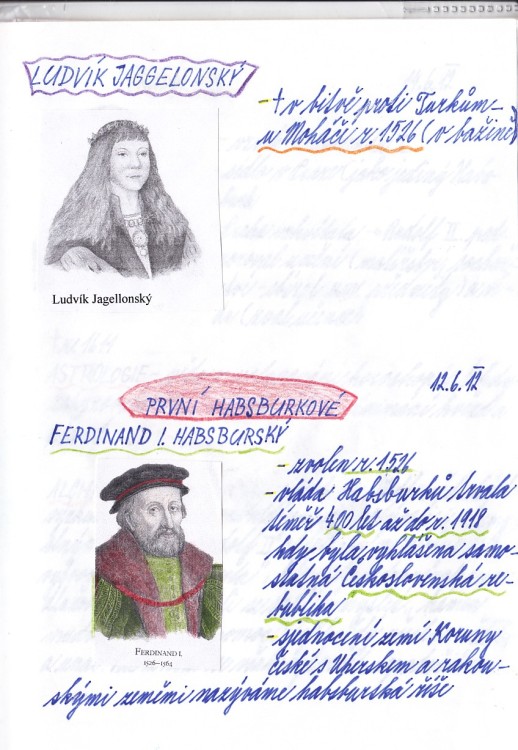 LUDVÍK JAGGELONSKÝ
- † v bitvě proti Turkům -
u Moháči r. 1526 (v bažině)
Ludvík Jagellonský
12.6.12
PRVNÍ HABSBURKOVÉ
FERDINAND I. HABSBURSKÝ
- zvolen r. 1526
- vláda Habsburků trvala
téměř 400 let až do r. 1918
kdy byla vyhlášena samo-
statná Československá re-
publika
- sjednocení zemí Koruny
české s Uherskem a rakou-
skými zeměmi nazýváme habsburská říše
FERDINAND I.
1526–1564